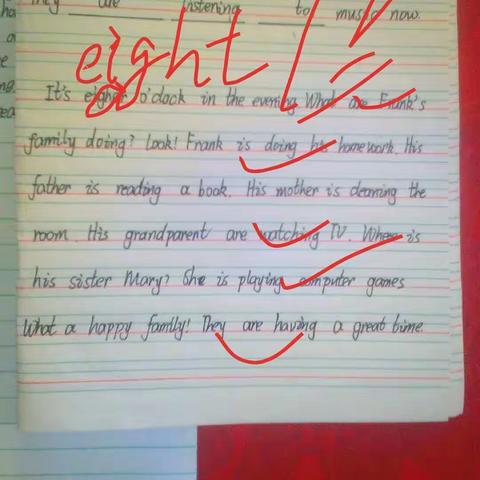 They are listening to music now.
eight
It's eigher o'clock in the evening What are Frank's
family doing? Look! Frank is doing his homework. His
father is reading a book. His mother is cleaning the
room. His grandparent are watching TV. Where is
his sister Mary? She is playing computer games
What a happy family! They are having a great time.